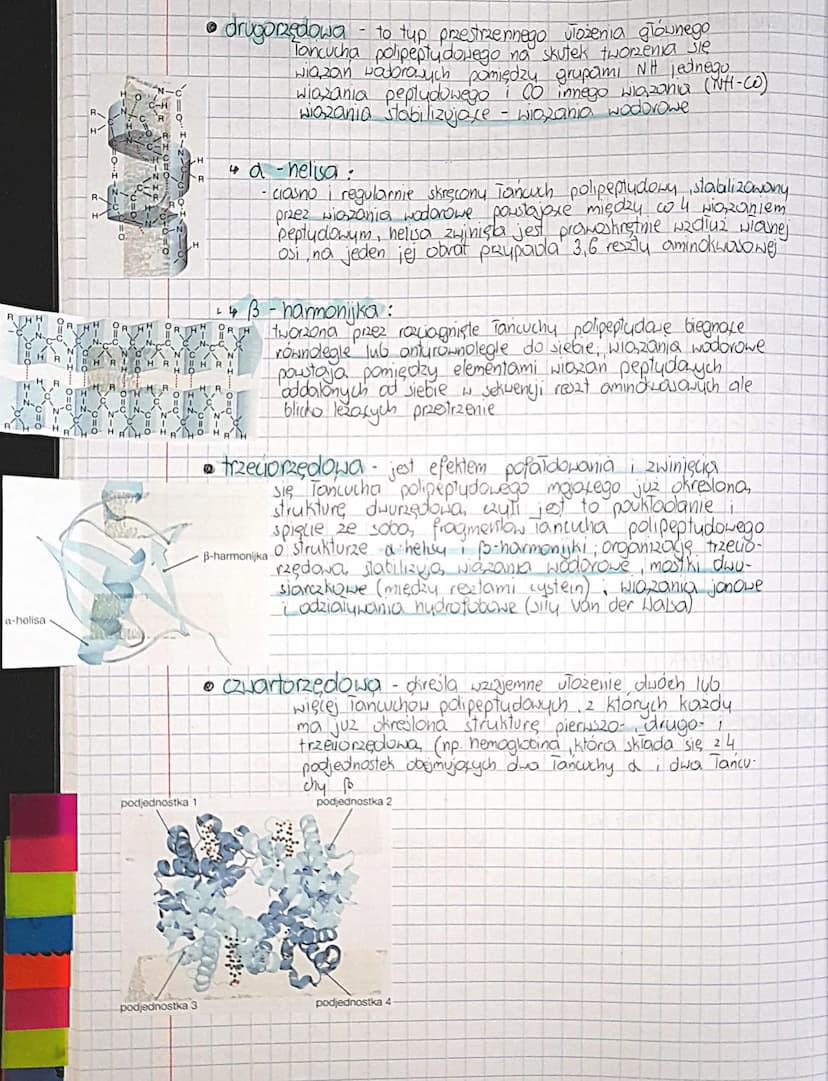 • drugorzędowa - to typ przestrzennego ułożenia głównego
łańcucha polipeptydowego na skutek tworzenia się
wiązań wodorowych pomiędzy grupami NH jednego
wiązania peptydowego i CO innego wiązania (NH-CO)
wiązania stabilizujące - wiązania wodorowe
↳ α - helisa :
- ciasno i regularnie skręcony łańcuch polipeptydowy, stabilizowany
przez wiązania wodorowe powstające między co 4 wiązaniem
peptydowym, helisa zwinięta jest prawoskrętnie wzdłuż własnej
osi, na jeden jej obrót przypada 3,6 reszty aminokwasowej
↳ β - harmonijka :
tworzona przez rozciągnięte łańcuchy polipeptydowe biegnące
równolegle lub antyrównolegle do siebie, wiązania wodorowe
powstają pomiędzy elementami wiązań peptydowych
oddalonych od siebie w sekwencji reszt aminokwasowych ale
blisko leżących przestrzenie
• trzeciorzędowa - jest efektem pofałdowania i zwinięcia
się łańcucha polipeptydowego mającego już określoną
strukturę dwurzędową, czyli jest to poukładanie i
spięcie ze sobą, fragmentów łańcucha polipeptydowego
o strukturze α-helisy i β-harmonijki ; organizację trzecio-
rzędową stabilizują wiązania wodorowe, mostki dwu-
siarczkowe (między resztami cystein), wiązania jonowe
i odziaływania hydrofobowe (siły Van der Walsa)
β-harmonijka
α-helisa
• czwartorzędowa - określa wzajemne ułożenie dwóch lub
więcej łańcuchów polipeptydowych, z których każdy
ma już określoną strukturę pierwszo-, drugo- i
trzeciorzędową (np. hemoglobina, która składa się z 4
podjednostek obejmujących dwa łańcuchy α i dwa łańcu-
chy β
podjednostka 1
podjednostka 2
podjednostka 3
podjednostka 4